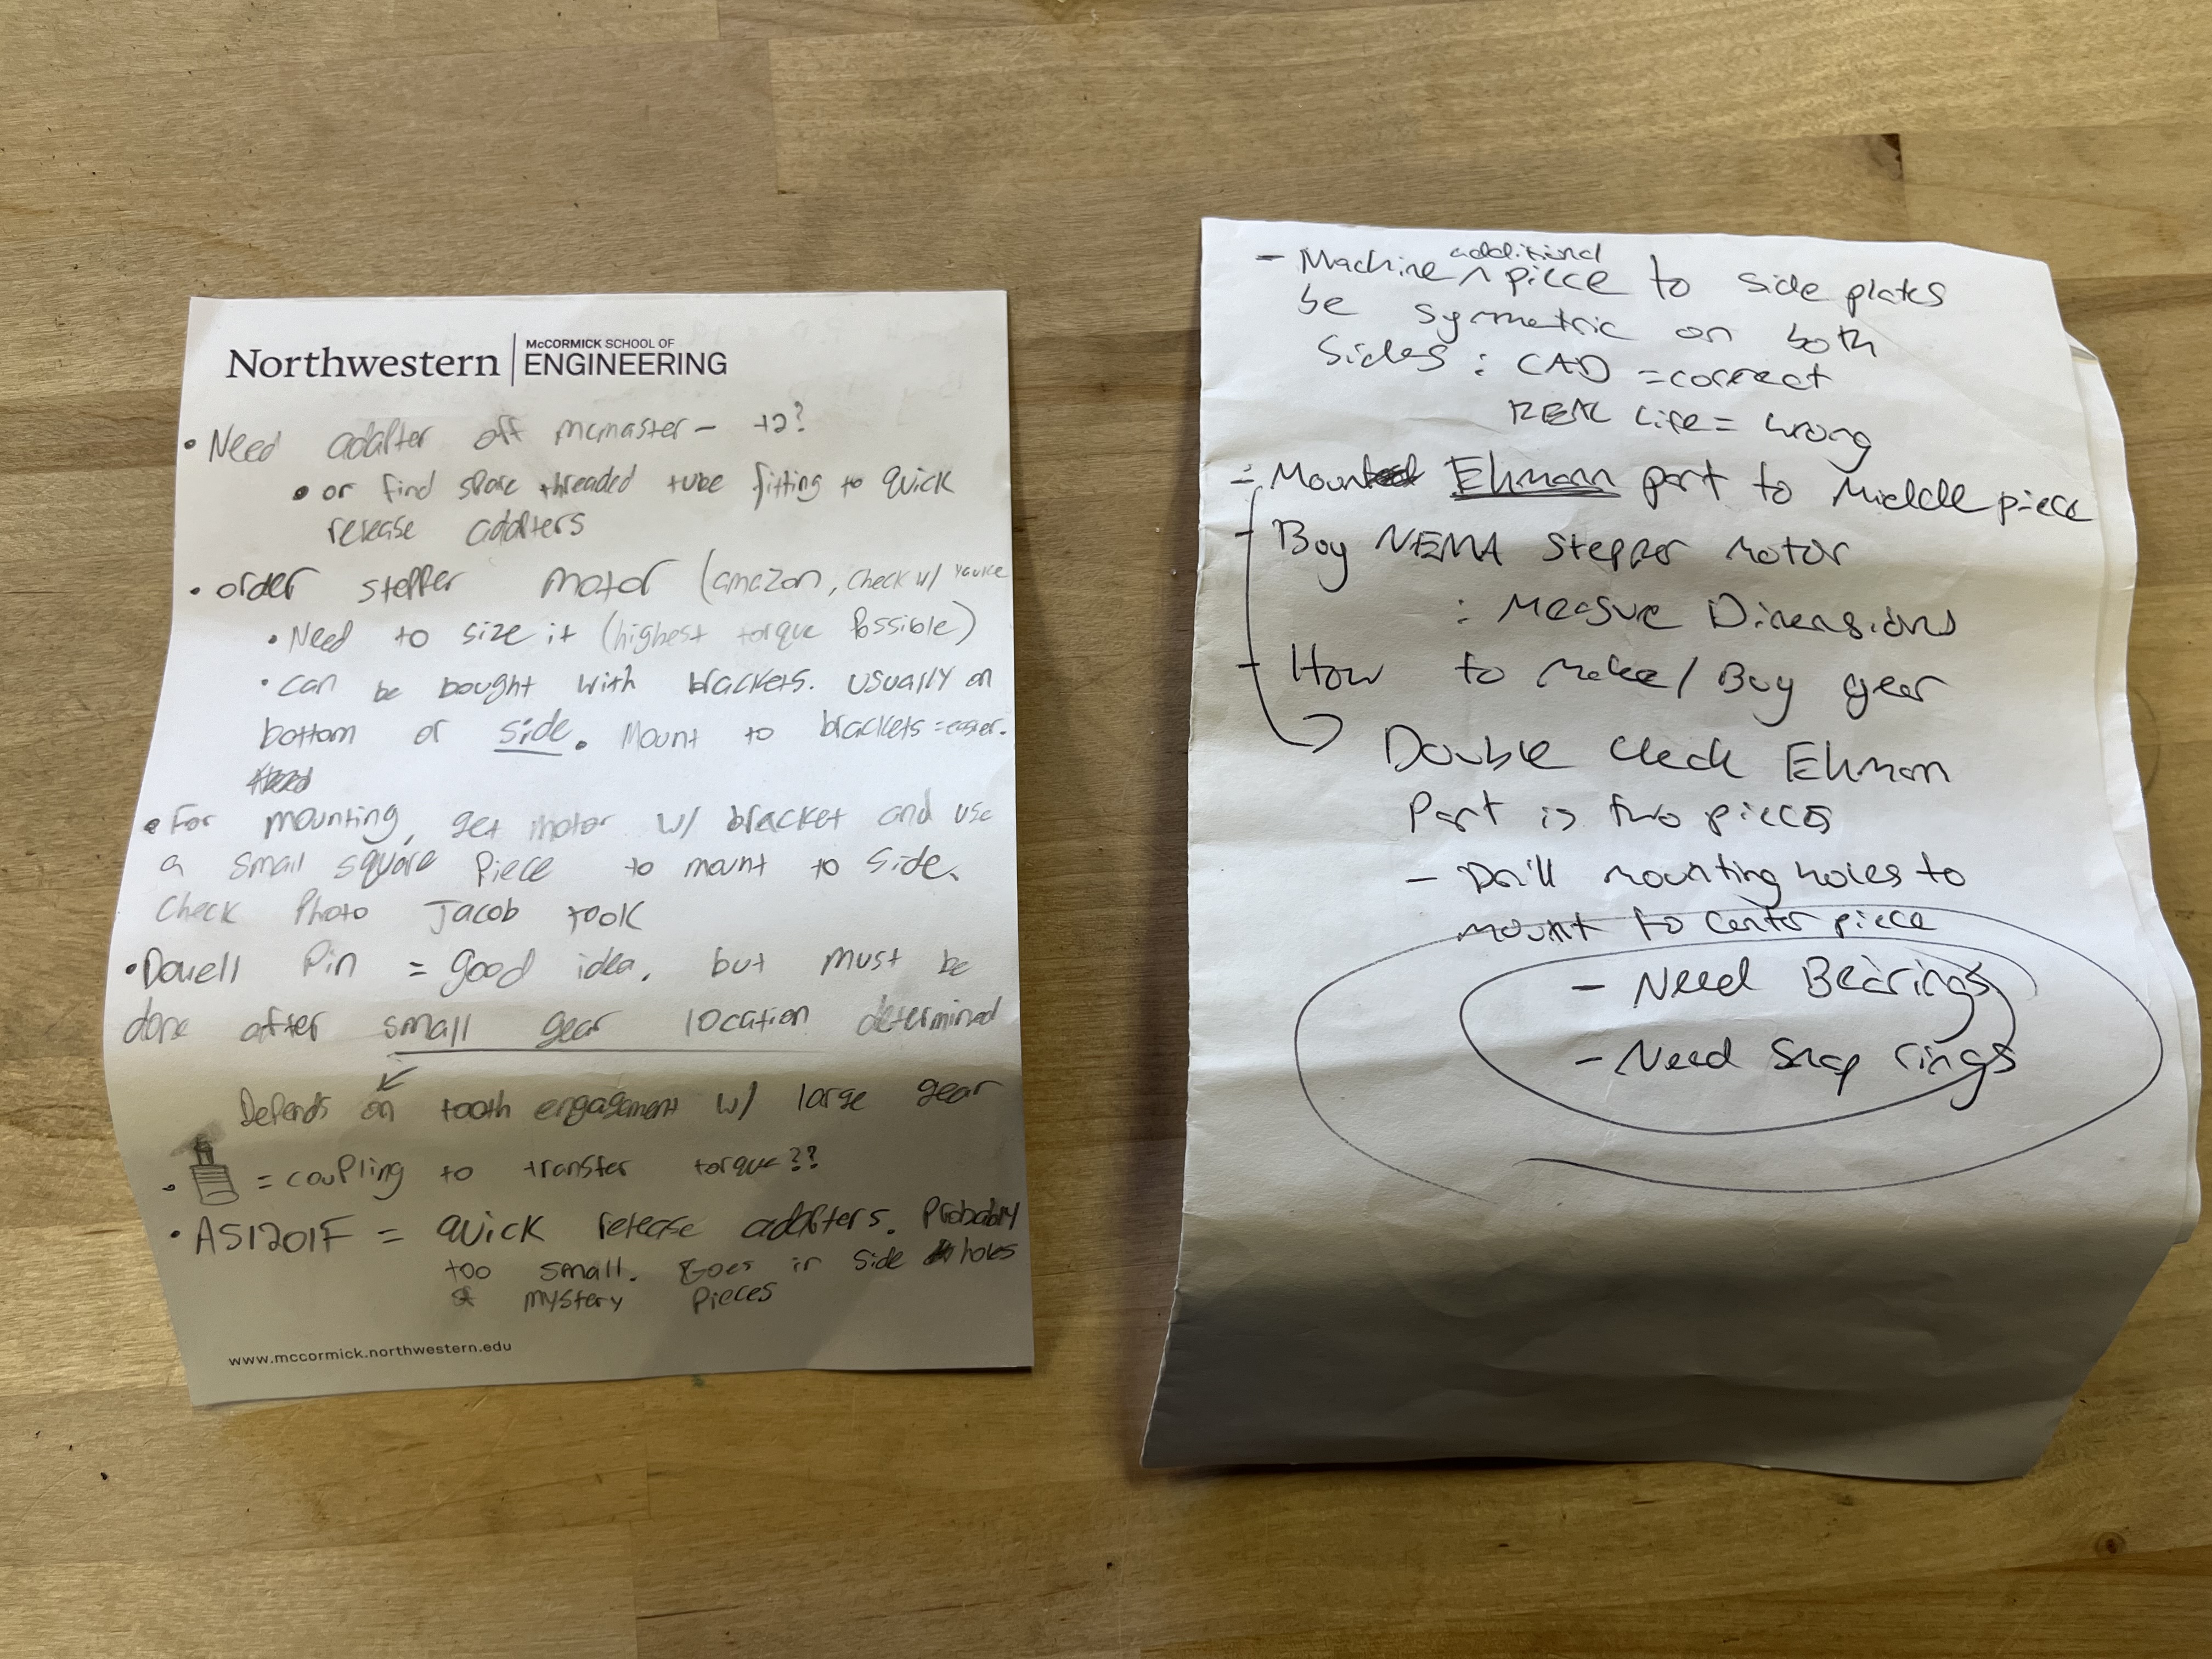 Northwestern
McCORMICK SCHOOL OF
ENGINEERING
• Need adapter off mcmaster - t2?
• or find spare threaded tube fitting to quick
release adapters
• order stepper motor (amazon, check w/
• Need to size it (highest torque possible)
• can be bought with brackets. usually on
bottom or side. Mount to brackets = easier.
• For mounting, get motor w/ bracket and use
a small square piece to mount to side.
Check Photo Jacob took
• Dowell Pin = good idea, but must be
done after small gear location determined
Depends on tooth engagement w/ large gear
• = coupling to transfer torque??
• AS1201F = quick release adapters. Probably
too small. goes in side holes
mystery pieces
www.mccormick.northwestern.edu
- Machine additional piece to side plates
be symmetric on both
sides : CAD = correct
REAL LIFE = wrong
- Mount Ehman part to middle piece
- Buy NEMA stepper motor
: Measure Dimensions
- How to make / Buy gear
Double check Ehman
Part is two pieces
- Drill mounting holes to
mount to center piece
- Need Bearings
- Need snap rings